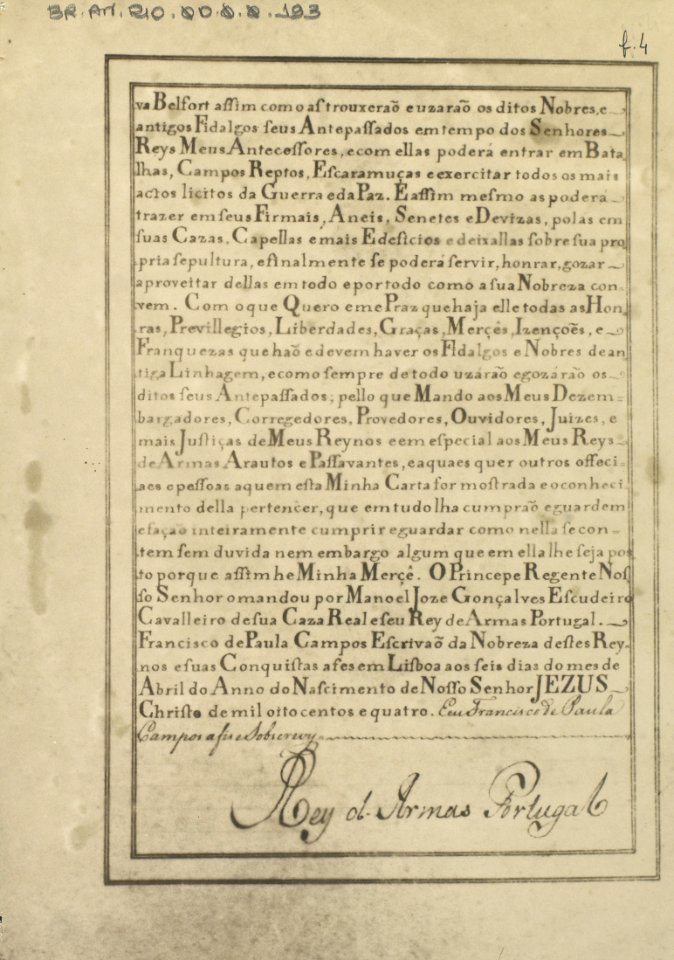 BR.AN.RIO.QD.0.0.193
f. 4
va Belfort assim como as trouxeraõ e uzaraõ os ditos Nobres, e
antigos Fidalgos seus Antepassados em tempo dos Senhores
Reys Meus Antecessores, e com ellas poderá entrar em Bata
lhas, Campos Reptos, Escaramuças e exercitar todos os mais
actos licitos da Guerra e da Paz. E assim mesmo as poderá
trazer em seus Firmais, Aneis, Senetes e Devizas, polas em
suas Cazas, Capellas e mais Edeficios e deixallas sobre sua pro
pria sepultura, e finalmente se poderá servir, honrar, gozar
aproveitar dellas em todo e por todo como a sua Nobreza con
vem. Com o que Quero e me Praz que haja elle todas as Hon
ras, Previllegios, Liberdades, Graças, Mercês, Izençoẽs, e
Franquezas que haõ e devem haver os Fidalgos e Nobres de an
tiga Linhagem, e como sempre de todo uzáraõ e gozáraõ os
ditos seus Antepassados; pello que Mando aos Meus Dezem
bargadores, Corregedores, Provedores, Ouvidores, Juizes, e
mais Justiças de Meus Reynos e em especial aos Meus Reys
de Armas Arautos e Passavantes, e a quaes quer outros offeci
aes e pessoas a quem esta Minha Carta for mostrada e o conheci
mento della pertencer, que em tudo lha cumpraõ e guardem
e façaõ inteiramente cumprir e guardar como nella se con
tem sem duvida nem embargo algum que em ella lhe seja pos
to porque assim he Minha Mercê. O Princepe Regente Nos
so Senhor o mandou por Manoel Joze Gonçalves Escudeiro
Cavalleiro de sua Caza Real e seu Rey de Armas Portugal.
Francisco de Paula Campos Escrivaõ da Nobreza destes Rey
nos e suas Conquistas a fes em Lisboa aos seis dias do mes de
Abril do Anno do Nascimento de Nosso Senhor JEZUS
Christo de mil oito centos e quatro. E eu Francisco de Paula
Campos a fiz e Sobscrevy
Rey d. Armas Portugal